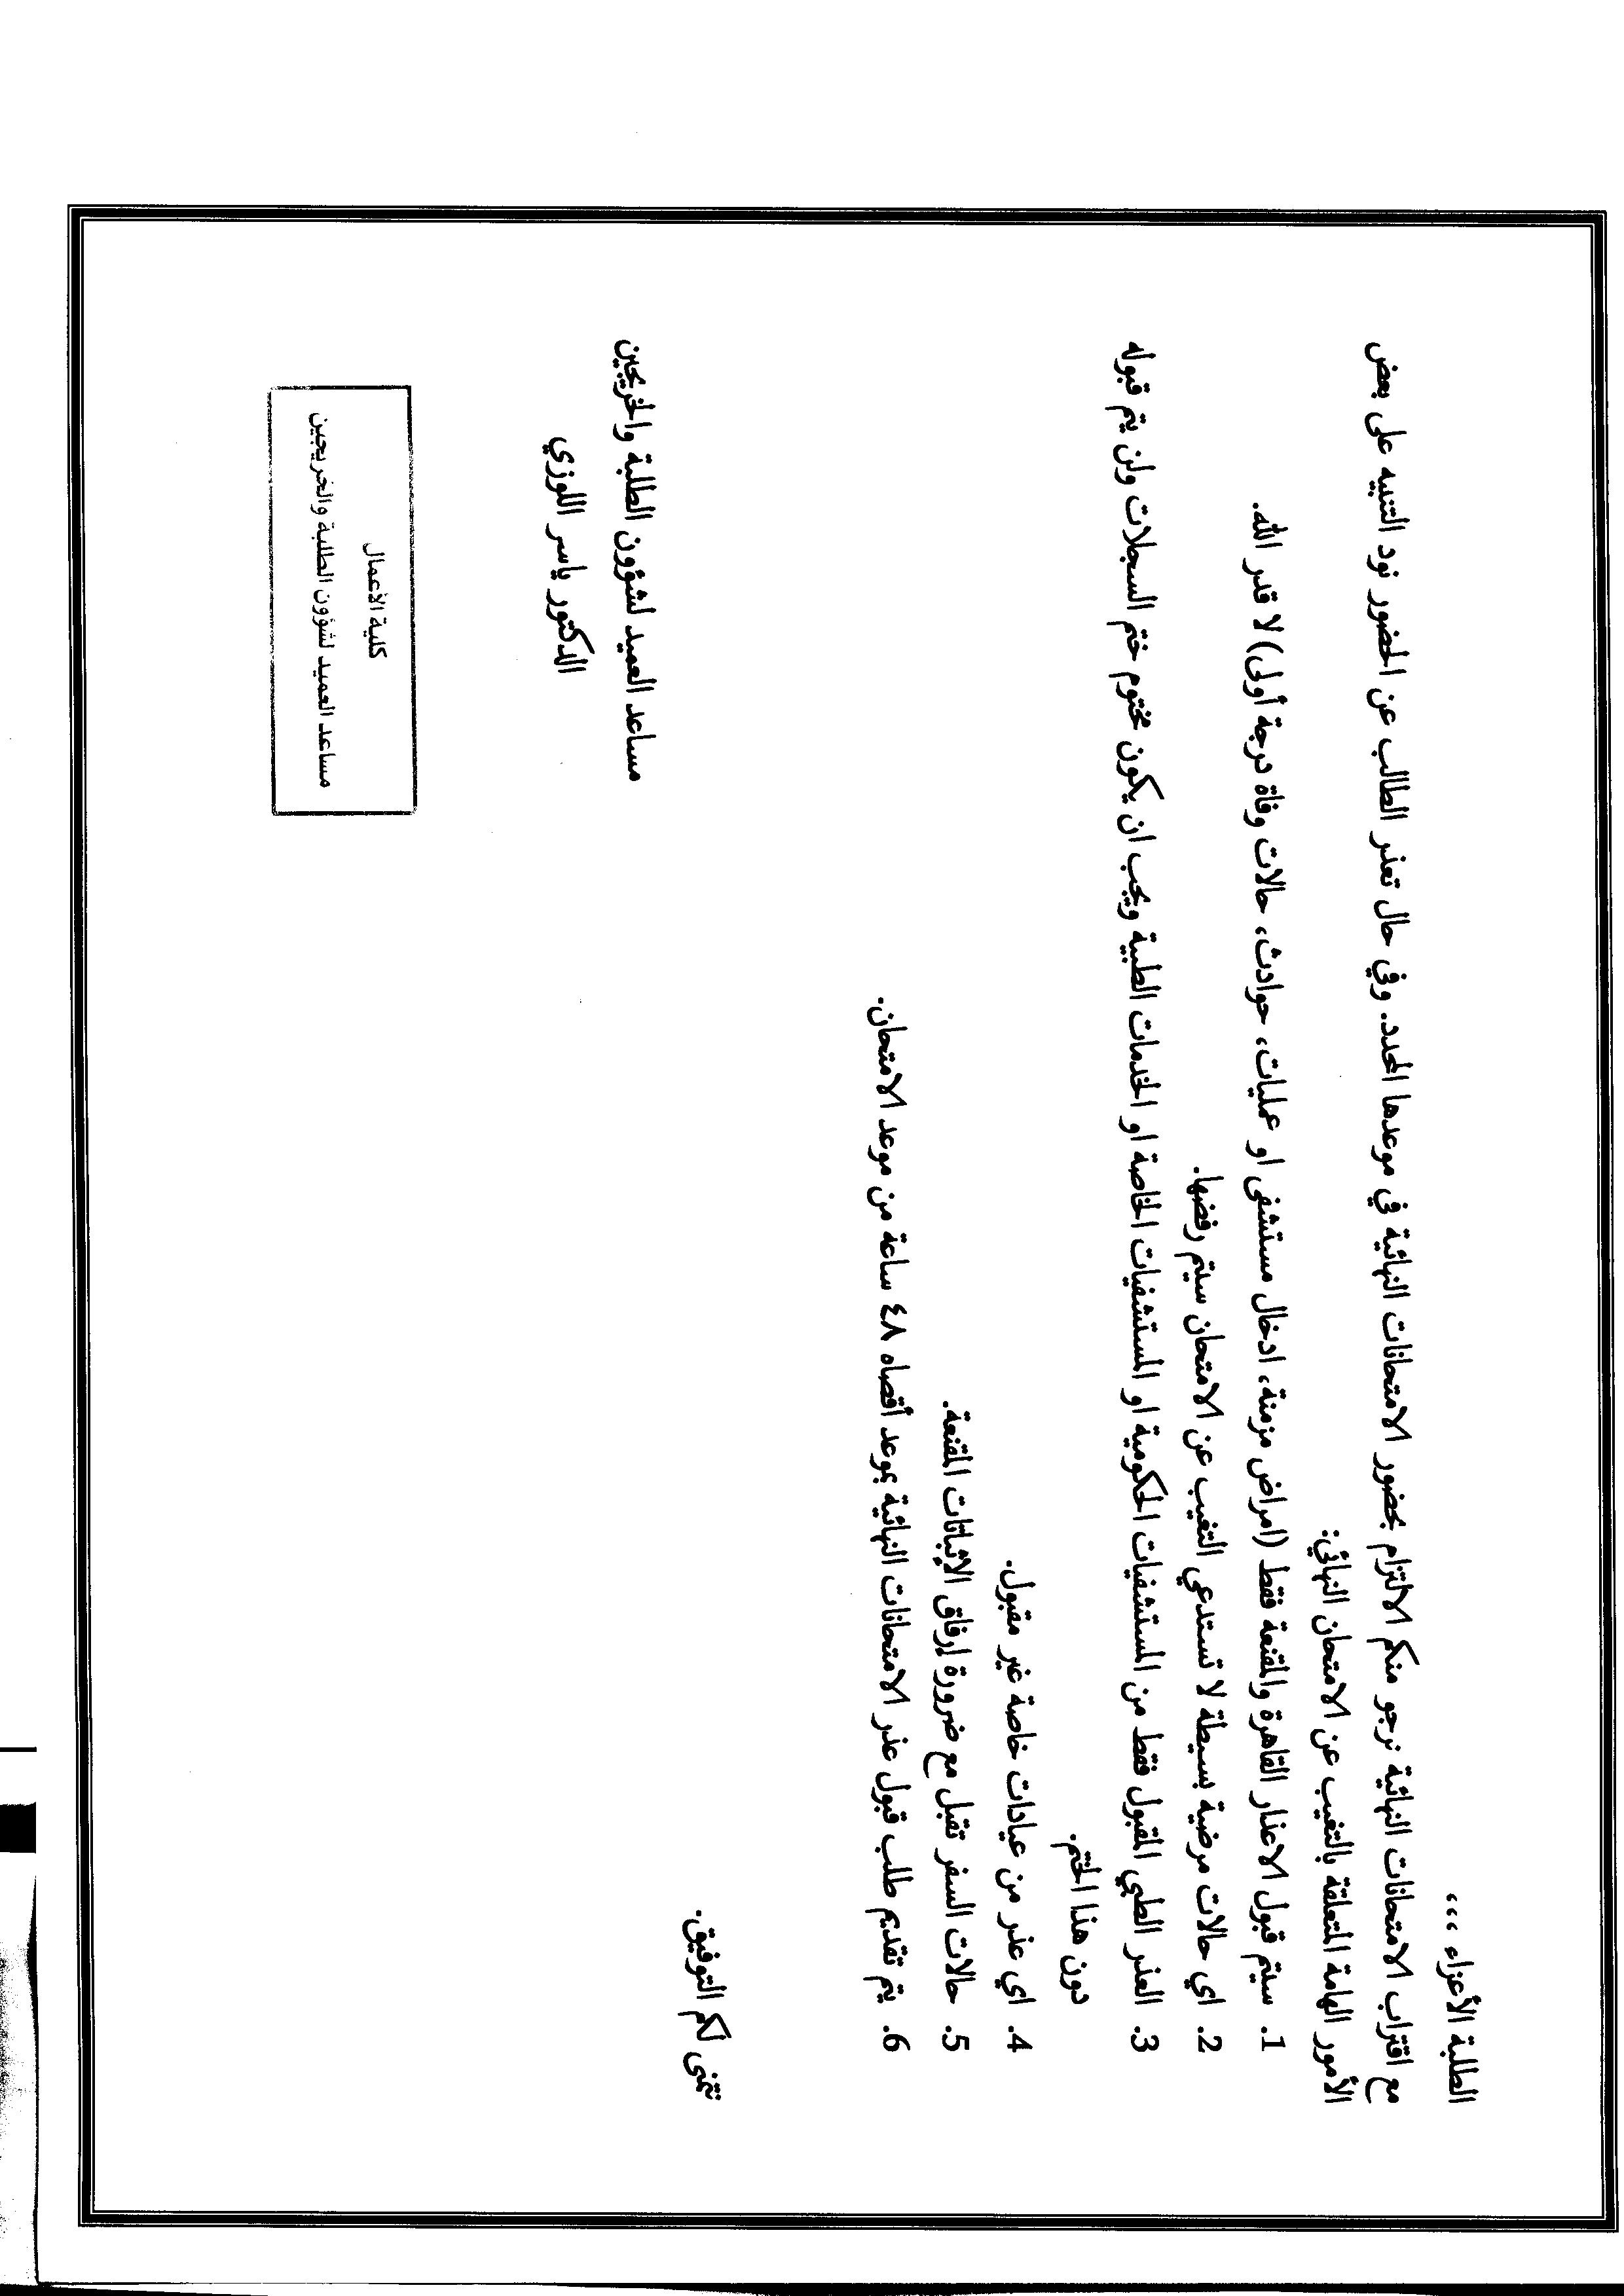 الطلبة الأعزاء ،،،
مع اقتراب الامتحانات النهائية نرجو منكم الالتزام بحضور الامتحانات النهائية في موعدها المحدد. وفي حال تعذر الطالب عن الحضور نود التنبيه على بعض
الأمور الهامة المتعلقة بالتغيب عن الامتحان النهائي:
1. سيتم قبول الاعذار القاهرة والمقنعة فقط (امراض مزمنة، ادخال مستشفى او عمليات، حوادث، حالات وفاة درجة أولى) لا قدر الله.
2. اي حالات مرضية بسيطة لا تستدعي التغيب عن الامتحان سيتم رفضها.
3. العذر الطبي المقبول فقط من المستشفيات الحكومية او المستشفيات الخاصة او الخدمات الطبية ويجب ان يكون مختوم ختم السجلات ولن يتم قبوله
دون هذا الختم.
4. اي عذر من عيادات خاصة غير مقبول.
5. حالات السفر تقبل مع ضرورة إرفاق الإثباتات المقنعة.
6. يتم تقديم طلب قبول عذر الامتحانات النهائية بموعد أقصاه ٤٨ ساعة من موعد الامتحان.
نتمنى لكم التوفيق.
مساعد العميد لشؤون الطلبة والخريجين
الدكتور ياسر اللوزي
كلية الأعمال
مساعد العميد لشؤون الطلبة والخريجين